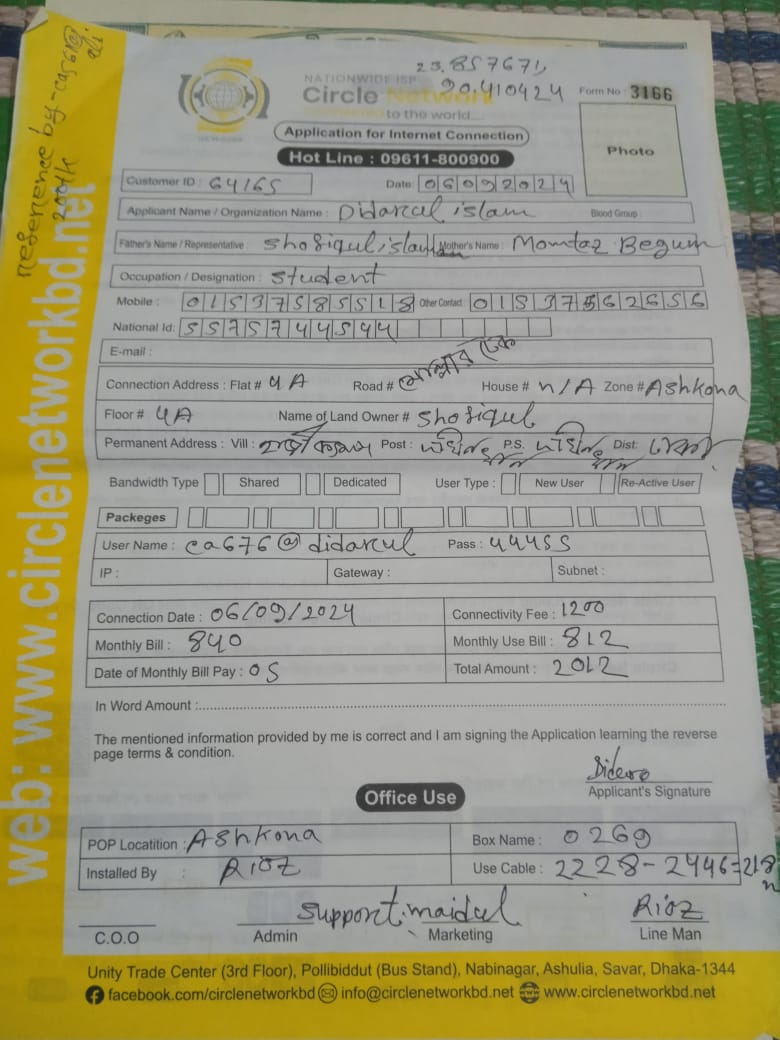 23.857671,
90.410424
NATIONWIDE ISP
Circle Network
to the world....
Form No : 3166
Application for Internet Connection
Hot Line : 09611-800900
Photo
Reference by - ca561@
200tk
Customer ID : 64165 Date: 06092024
Applicant Name / Organization Name : Didarul islam Blood Group :
Father's Name / Representative : Shofiqul islam Mother's Name : Momtaz Begum
Occupation / Designation : Student
Mobile : 01537585518 Other Contact : 01537562656
National Id: 5575744544
E-mail :
Connection Address : Flat # 4A Road # House # n/A Zone # Ashkona
Floor # 4A Name of Land Owner # Shofiqul
Permanent Address : Vill : Post : P.S. Dist:
Bandwidth Type Shared Dedicated User Type : New User Re-Active User
Packeges
User Name : ca676@didarul Pass : 44455
IP : Gateway : Subnet :
Connection Date : 06/09/2024 Connectivity Fee : 1200
Monthly Bill : 840 Monthly Use Bill : 812
Date of Monthly Bill Pay : 05 Total Amount : 2012
In Word Amount :
The mentioned information provided by me is correct and I am signing the Application learning the reverse
page terms & condition.
Applicant's Signature
Office Use
POP Locatition : Ashkona Box Name : 0269
Installed By : Rioz Use Cable : 2228-2446=218
Support. maidul Rioz
C.O.O Admin Marketing Line Man
Unity Trade Center (3rd Floor), Pollibiddut (Bus Stand), Nabinagar, Ashulia, Savar, Dhaka-1344
facebook.com/circlenetworkbd info@circlenetworkbd.net www.circlenetworkbd.net
web: www.circlenetworkbd.net